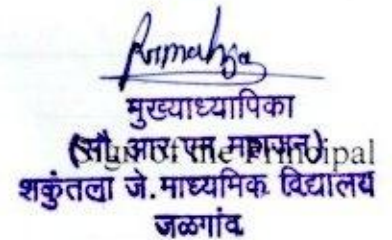 मुख्याध्यापिका
(सौ. आर. एम. महाजन)
Sign of the Principal
शकुंतला जे. माध्यमिक विद्यालय
जळगांव